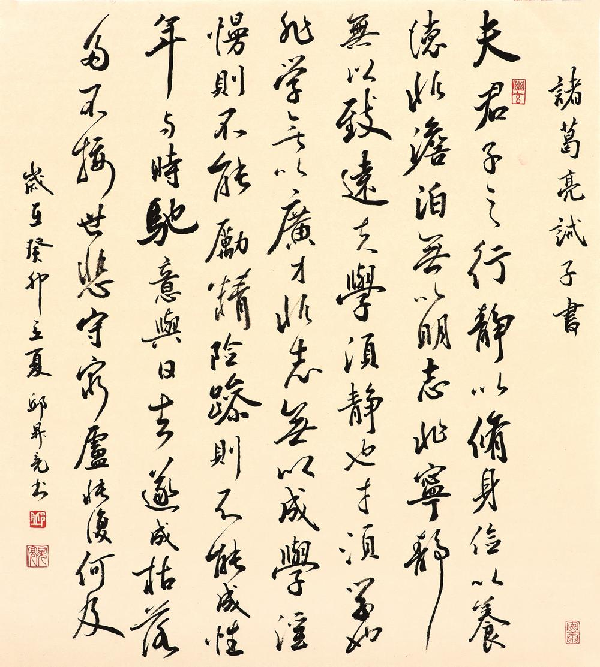 諸葛亮誡子書
夫君子之行靜以脩身儉以養
德非澹泊無以明志非寧靜
無以致遠夫學須靜也才須學也
非学無以廣才非志無以成學淫
慢則不能勵精險躁則不能成性
年与時馳意與日去遂成枯落
多不接世悲守窮廬將復何及
歲在癸卯立夏邱昇亮书